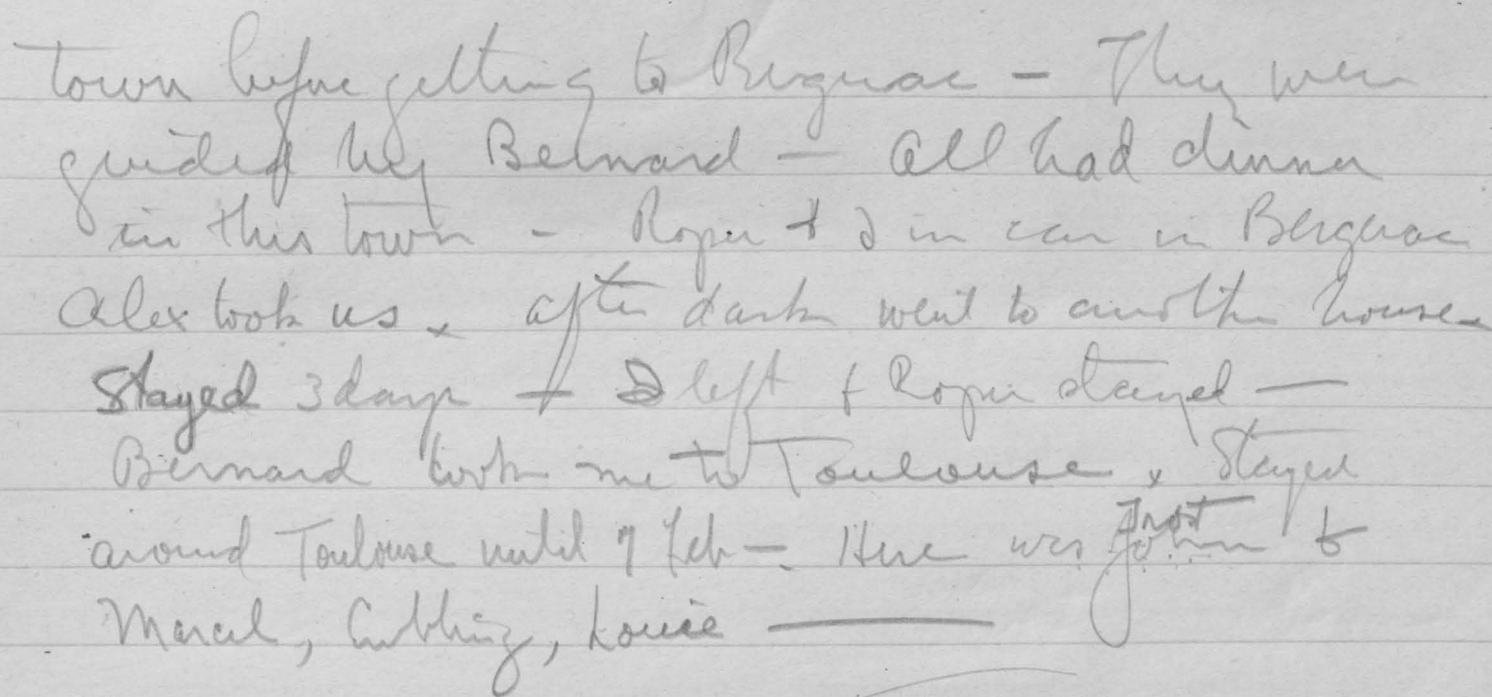 town before getting to Bergerac — They were
guided by Bernard — all had dinner
in this town - Roper & I in car in Bergerac
Alex took us. after dark went to another house
Stayed 3 days + I left & Roper stayed —
Bernard took me to Toulouse, stayed
around Toulouse until 7 Feb — Here was Frost
Marcel, Cubbing, Louie —